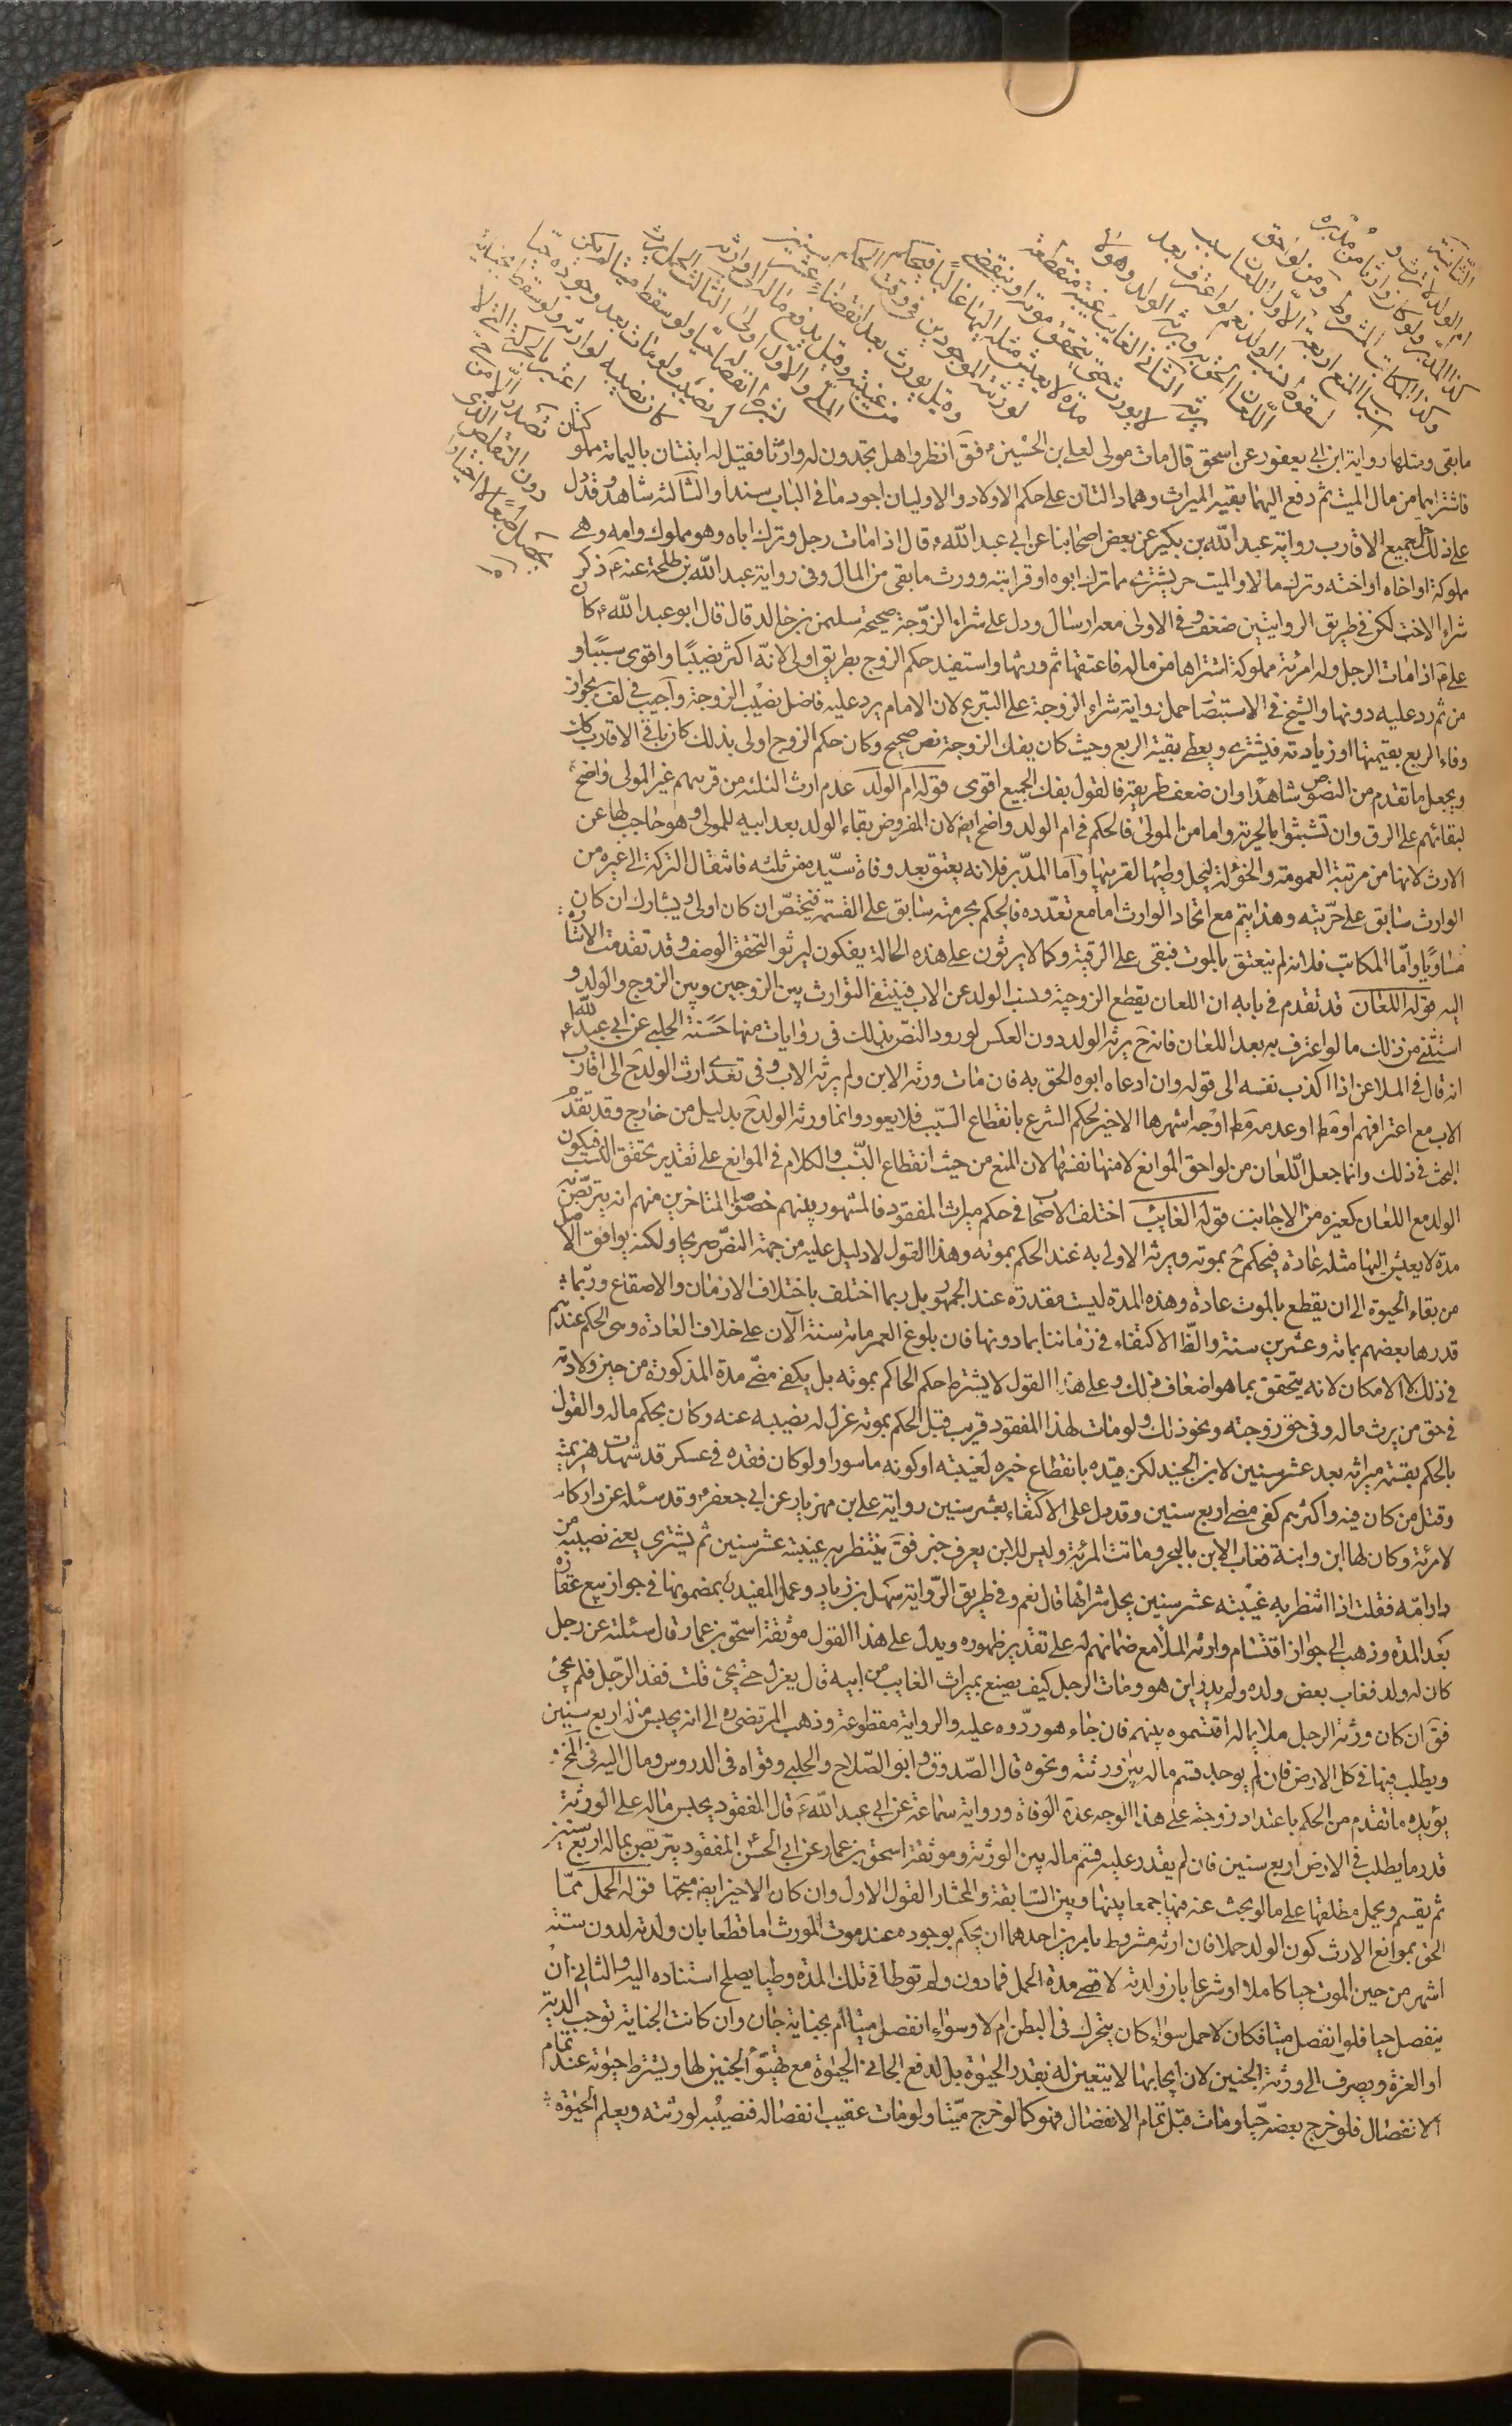 الثانية
ام الولد لا ترث و
كذا المدبر ولو كان وارثا من مدبره
وكذا المكاتب المشروط ومن لواحق
اسباب المنع اربعة الاول اللعان سبب
لسقوط نسب الولد نعم لو اعترف بعد
اللعان الحق به ويرثه الولد وهو لا
يرثه الثاني الغايب غيبة منقطعة
لا يورث حتى يتحقق موته او ينقضي
مدة لا يعيش مثله اليها غالبا فيحكم
لورثته الموجودين في وقت الحكم
وقيل يورث بعد انقضاء عشر سنين
من غيبته وقيل يدفع ماله الى وارثه
الملي والاول اولى الثالث الحمل يرث
بشرط انفصاله حيا ولو سقط ميتا لم يكن
له نصيب ولو مات بعد وجوده حيا
كان نصيبه لوارثه ولو سقط بجناية
اعتبر بالحركة التي لا
تصدر الا من حي
دون التقلص الذي
يحصل طبعا لا اختيارا
ما بقي ومثلها رواية ابن ابي يعفور عن اسحق قال مات مولى لعلي بن الحسين ع فقَ انظروا هل تجدون له وارثا فقيل له ابنتان باليمامة مملوكتان
فاشتراهما من مال الميت ثم دفع اليهما بقية الميراث وهما دالتان على حكم الاولاد والاوليان اجود ما في الباب سندا والثالثة شاهد وقد دل
على ذلك لجميع الاقارب رواية عبد الله بن بكير عن بعض اصحابنا عن ابي عبد الله ع قال اذا مات رجل وترك اباه وهو مملوك وامه وهي
مملوكة او اخاه او اخته وترك مالا والميت حر يشترى مما ترك ابوه او قرابته وورث ما بقي من المال وفي رواية عبد الله بن طلحة عنه ع ذكر
شراء الاخت لكن في طريق الروايتين ضعف وفي الاولى معه ارسال ودل على شراء الزوجة صحيحة سليمن بن خالد قال قال ابو عبد الله ع كان
علي ع اذا مات الرجل وله امرئة مملوكة اشتراها من ماله فاعتقها ثم ورثها واستفيد حكم الزوج بطريق اولى لانه اكثر نصيبا واقوى سببا و
من ثم رد عليه دونها والشيخ في الاستبصا حمل رواية شراء الزوجة على التبرع لان الامام يرد عليه فاضل نصيب الزوجة واجيب في لف بجواز
وفاء الربع بقيمتها او زيادته فيشترى ويعطى بقية الربع وحيث كان يفك الزوجة نص صحيح وكان حكم الزوج اولى بذلك كان باقي الاقارب كك
ويجعل ما تقدم من النصوص شاهدا وان ضعف طريقه فالقول بفك الجميع اقوى قوله ام الولد عدم ارث الثلثه من قريبهم غير المولى واضح
لبقائهم على الرق وان تشبثوا بالحرية واما من المولى فالحكم في ام الولد واضح ايض لان المفروض بقاء الولد بعد ابيه للمولى وهو حاجب لها عن
الارث لانها من مرتبة العمومة والخؤلة ليحل وطيها لقربتها واما المدبر فلانه يعتق بعد وفاة سيده من ثلثه فانتقال التركة الى غيره من
الوارث سابق على حريته وهذا يتم مع اتحاد الوارث اما مع تعدده فالحكم بحرمته سابق على القسمة فيختص ان كان اولى ويشارك ان كان
مساويا واما المكاتب فلانه لم ينعتق بالموت فبقي على الرقية وكما لا يرثون على هذه الحالة يفكون ليرثوا لتحقق الوصف وقد تقدمت الاشارة
اليه قوله اللعان قد تقدم في بابه ان اللعان يقطع الزوجية ونسب الولد عن الاب فينتفي التوارث بين الزوجين وبين الزوج والولد و
استثني من ذلك ما لو اعترف به بعد اللعان فانه ح يرثه الولد دون العكس لورود النص بذلك في روايات منها حسنة الحلبي عن ابي عبد الله ع
انه قال في الملاعن اذا اكذب نفسه الى قوله وان ادعاه ابوه الحق به فان مات ورثه الابن ولم يرثه الاب وفي تعدى ارث الولد ح الى اقارب
الاب مع اعترافهم او مط او عدمه مط اوجه اشهرها الاخير لحكم الشرع بانقطاع السبب فلا يعود وانما ورثه الولد ح بدليل من خارج وقد تقدم
البحث في ذلك وانما جعل اللعان من لواحق الموانع لا منها نفسها لان المنع من حيث انقطاع النسب والكلام في الموانع على تقدير تحقق النسب فيكون
الولد مع اللعان كغيره من الاجانب قوله الغايب اختلف الاصحاب في حكم ميراث المفقود فالمشهور بينهم خصوصا المتاخرين منهم انه يتربص به
مدة لا يعيش اليها مثله عادة فيحكم ح بموته ويرثه الاولى به عند الحكم بموته وهذا القول لا دليل عليه من جهة النص صريحا ولكنه يوافق الاصل
من بقاء الحيوة الى ان يقطع بالموت عادة وهذه المدة ليست مقدرة عند الجمهور بل ربما اختلف باختلاف الازمان والاصقاع وربما
قدرها بعضهم بمائة وعشرين سنة والظ الاكتفاء في زماننا بما دونها فان بلوغ العمر مائة سنة الآن على خلاف العادة وسر الحكم عندهم
في ذلك الامكان لانه يتحقق بما هو اضعاف ذلك وعلى هذا القول لا يشترط حكم الحاكم بموته بل يكفي مضي مدة المذكورة من حين ولادته
في حق من يرث ماله وفي حق زوجته ونحو ذلك ولو مات لهذا المفقود قريب قبل الحكم بموته عزل له نصيبه عنه وكان بحكم ماله والقول
بالحكم بقسمة ميراثه بعد عشر سنين لابن الجنيد لكن قيده بانقطاع خبره لغيبته او كونه ماسورا ولو كان فقده في عسكر قد شهدت هزيمته
وقتل من كان فيه واكثرهم كفى مضي اربع سنين وقد دل على الاكتفاء بعشر سنين رواية علي بن مهزيار عن ابي جعفر ع وقد سئله عن دار كانت
لامرئة وكان لها ابن وابنة فغاب الابن بالبحر وماتت المرئة وليس للابن يعرف خبر فقَ ينتظر به غيبته عشر سنين ثم يشترى يعني نصيبه من
دار امه فقلت اذا انتظر به غيبته عشر سنين يحل شرائها قال نعم وفي طريق الرواية سهل بن زياد وعمل المفيد ره بمضمونها في جواز بيع عقاره
بعد المدة وذهب الى جواز اقتسام وارثه الملأ مع ضمانهم له على تقدير ظهوره ويدل على هذا القول موثقة اسحق بن عمار قال سئلته عن رجل
كان له ولد فغاب بعض ولده ولم يدر اين هو ومات الرجل كيف يصنع بميراث الغايب من ابيه قال يعزل حتى يجئ قلت فقد الرجل فلم يجئ
فقَ ان كان ورثة الرجل ملأ بماله اقتسموه بينهم فان جاء هو ردوه عليه والرواية مقطوعة وذهب المرتضى ره الى انه يحبس منه اربع سنين
ويطلب فيها في كل الارض فان لم يوجد قسم ماله بين ورثته ونحوه قال الصدوق وابو الصلاح والحلبي وقواه في الدروس ومال اليه في الخ
يؤيده ما تقدم من الحكم باعتداد زوجته على هذا الوجه عدة الوفاة ورواية سماعة عن ابي عبد الله ع قال المفقود يحبس ماله على الورثة
قدر ما يطلب في الارض اربع سنين فان لم يقدر عليه قسم ماله بين الورثة وموثقة اسحق بن عمار عن ابي الحسن المفقود يتربص بماله اربع سنين
ثم يقسم ويحمل مطلقها على ما لو بحث عنه فيها جمعا بينها وبين السابقة والمختار القول الاول وان كان الاخير ايض متجها قوله الحمل مما
الحق بموانع الارث كون الولد حملا فان ارثه مشروط بامرين احدهما ان يحكم بوجوده عند موت المورث اما قطعا بان ولدته لدون ستة
اشهر من حين الموت حيا كاملا او شرعا بان ولدته لاقصى مدة الحمل فما دون ولم توطا في تلك المدة وطيا يصلح استناده اليه والثاني ان
ينفصل حيا فلو انفصل ميتا فكان لا حمل سواء كان يتحرك في البطن ام لا وسواء انفصل ميتا ام بجناية جان وان كانت الجناية توجب الدية
او الغرة ويصرف الى ورثة الجنين لان ايجابها لا يتعين له بقدر الحيوة بل لدفع الجاني الحيوة مع تهيؤ الجنين لها ويشترط حيوته عند تمام
الانفصال فلو خرج بعضه حيا ومات قبل تمام الانفصال فهو كما لو خرج ميتا ولو مات عقيب انفصاله فنصيبه لورثته ويعلم الحيوة